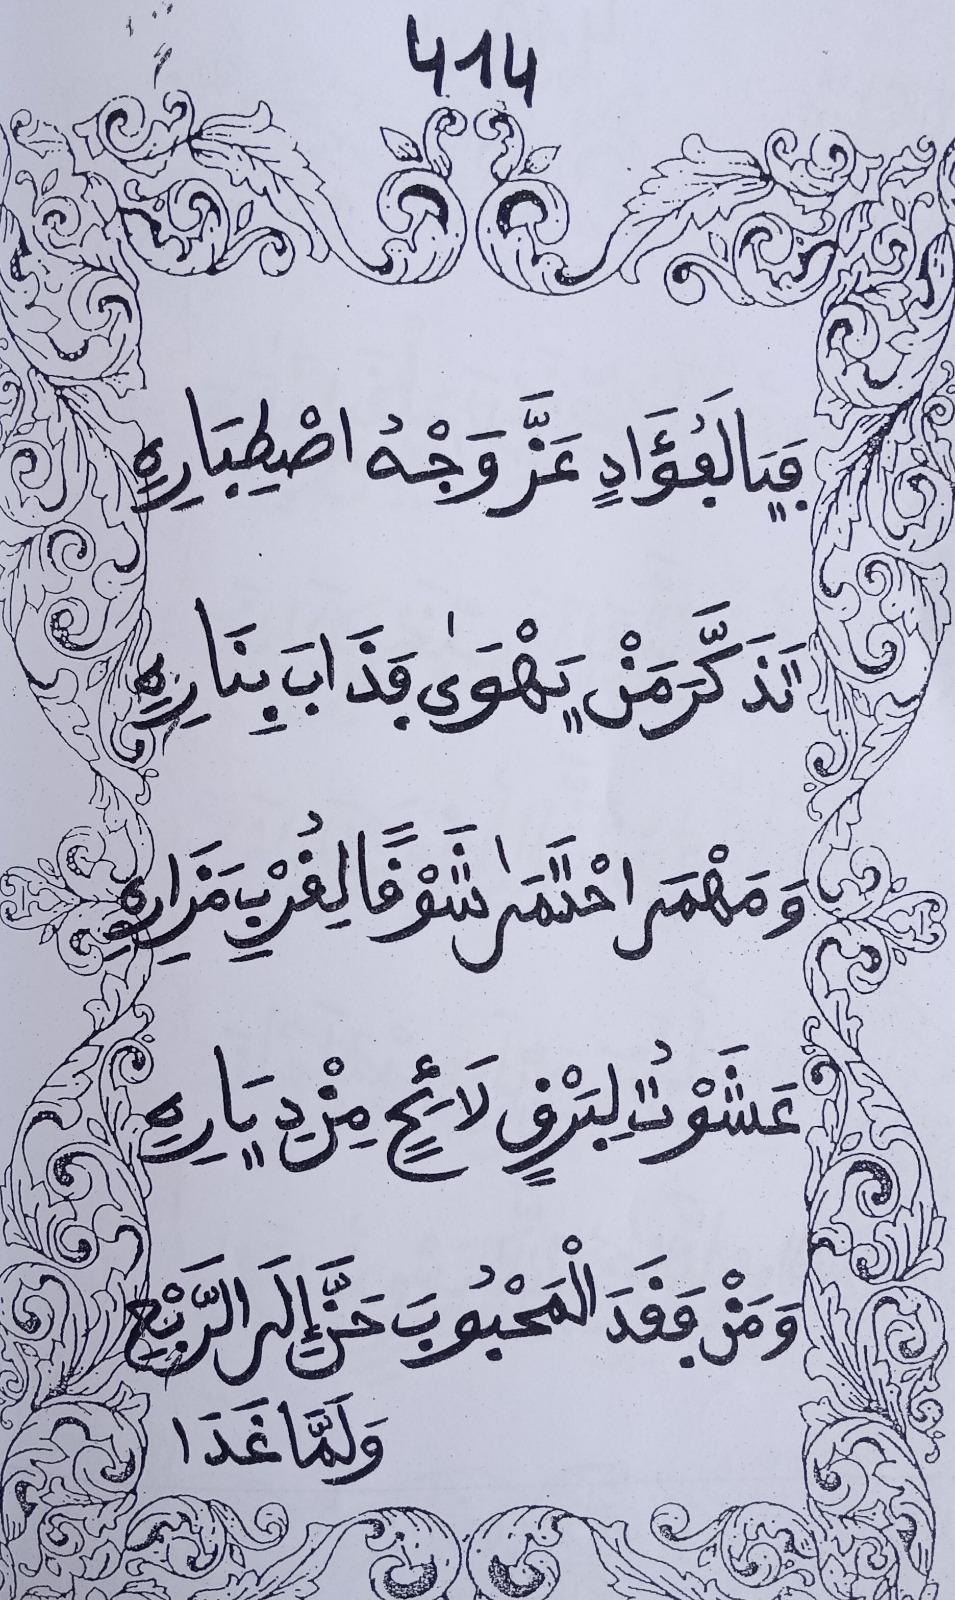 414
فَيَا لَفُؤَادٍ عَزَّ وَجْهُ اصْطِبَارِهِ
تَذَكَّرَ مَنْ يَهْوَىٰ فَذَابَ بِنَارِهِ
وَمَهْمَى احْتَمَىٰ شَوْقًا لِقُرْبِ مَزَارِهِ
عَشَوْتُ لِبَرْقٍ لَائِحٍ مِنْ دِيَارِهِ
وَمَنْ فَقَدَ الْمَحْبُوبَ حَنَّ إِلَى الرَّبْعِ
وَلَمَّا غَدَا